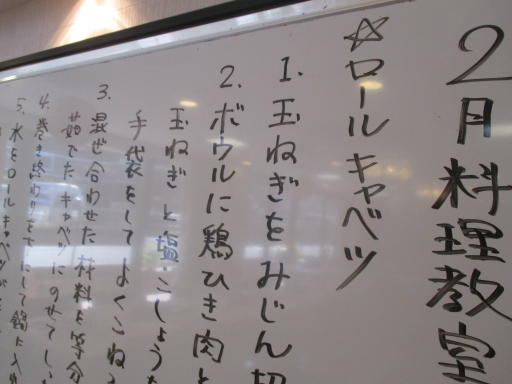 2月料理教室
☆ロールキャベツ
1. 玉ねぎをみじん切
2. ボウルに鶏ひき肉と
玉ねぎと塩・こしょうを
手袋をしてよくこねる
3. 混ぜ合わせた材料を等分
茹でたキャベツにのせて
4. 巻き終わりを下にして鍋に入れ
5. 水をロールキャベツが